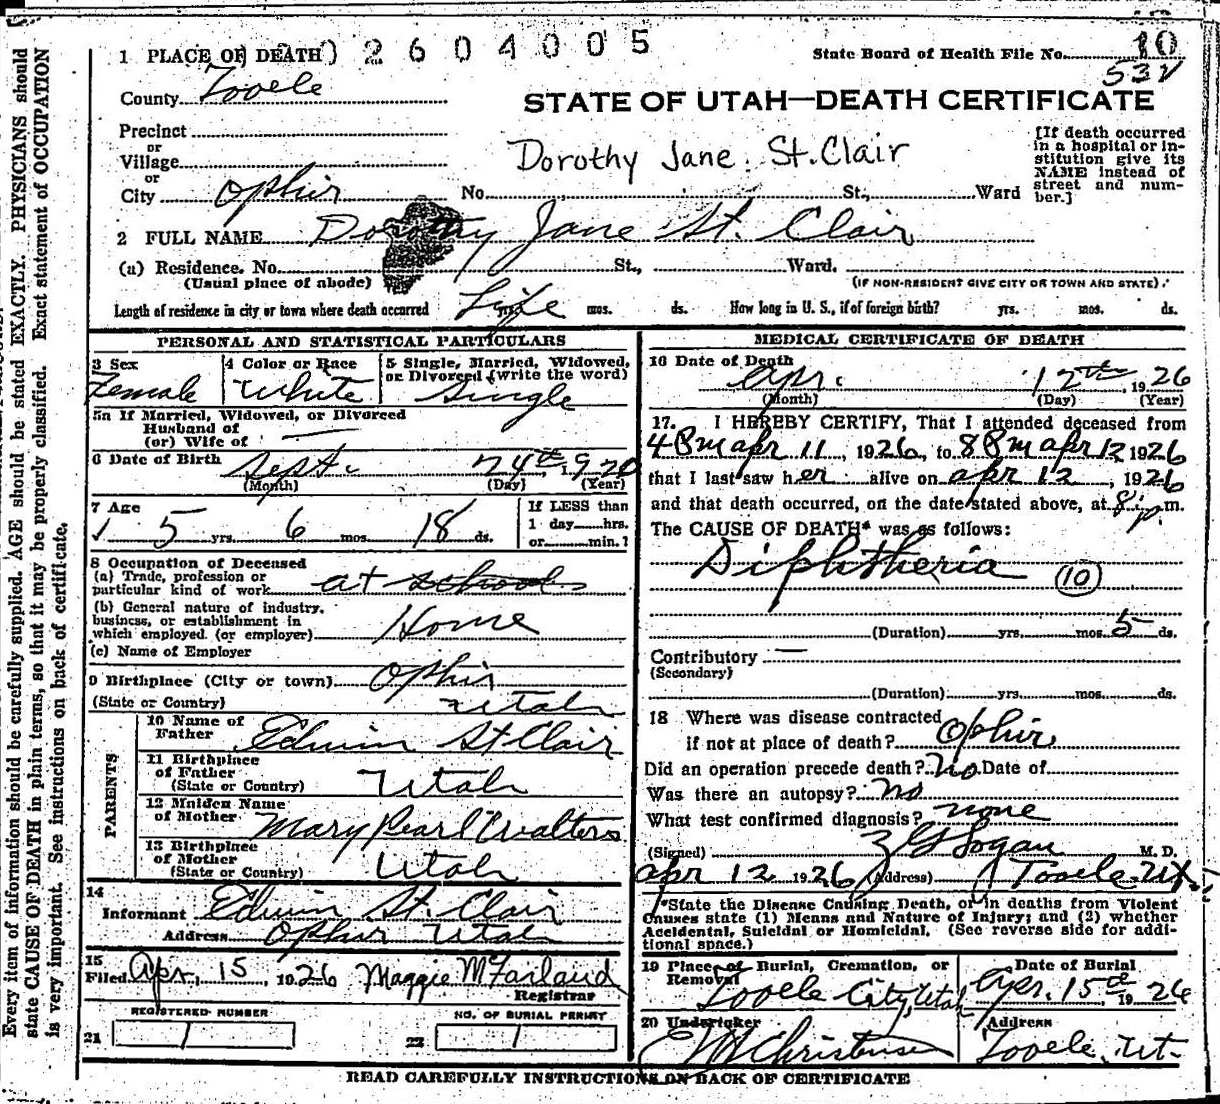 Every item of information should be carefully supplied. AGE should be stated EXACTLY. PHYSICIANS should
state CAUSE OF DEATH in plain terms, so that it may be properly classified. Exact statement of OCCUPATION
is very important. See instructions on back of certificate.
1 PLACE OF DEATH) 2604005
State Board of Health File No. 10
532
County Tooele
STATE OF UTAH—DEATH CERTIFICATE
Precinct
or
Village
or
City Ophir No. St., Ward
Dorothy Jane St. Clair
[If death occurred
in a hospital or in-
stitution give its
NAME instead of
street and num-
ber.]
2 FULL NAME Dorothy Jane St. Clair
(a) Residence. No. St., Ward.
(Usual place of abode) (IF NON-RESIDENT GIVE CITY OR TOWN AND STATE)
Length of residence in city or town where death occurred Life yrs. mos. ds. How long in U. S., if of foreign birth? yrs. mos. ds.
PERSONAL AND STATISTICAL PARTICULARS
3 Sex 4 Color or Race 5 Single, Married, Widowed,
or Divorced (write the word)
Female White Single
5a If Married, Widowed, or Divorced
Husband of
(or) Wife of
6 Date of Birth Sept. 24th, 1920
(Month) (Day) (Year)
7 Age If LESS than
5 yrs. 6 mos. 18 ds. 1 day hrs.
or min.?
8 Occupation of Deceased
(a) Trade, profession or
particular kind of work at school
(b) General nature of industry,
business, or establishment in
which employed (or employer) Home
(c) Name of Employer
9 Birthplace (City or town) Ophir
(State or Country) Utah
PARENTS
10 Name of
Father Edwin St Clair
11 Birthplace
of Father
(State or Country) Utah
12 Maiden Name
of Mother Mary Pearl Walters
13 Birthplace
of Mother
(State or Country) Utah
14
Informant Edwin St. Clair
Address Ophir Utah
15
Filed Apr, 15, 1926 Maggie McFarland
Registrar
REGISTERED NUMBER NO. OF BURIAL PERMIT
21 1 22 1
MEDICAL CERTIFICATE OF DEATH
16 Date of Death
Apr. 12th 1926
(Month) (Day) (Year)
17. I HEREBY CERTIFY, That I attended deceased from
4 Pm apr 11, 1926, to 8 Pm apr 12 1926
that I last saw her alive on apr 12, 1926
and that death occurred, on the date stated above, at 8 p. m.
The CAUSE OF DEATH* was as follows:
Diphtheria (10)
(Duration) yrs. mos. 5 ds.
Contributory —
(Secondary)
(Duration) yrs. mos. ds.
18 Where was disease contracted
if not at place of death? Ophir
Did an operation precede death? No Date of
Was there an autopsy? no
What test confirmed diagnosis? none
(Signed) Logan M. D.
apr 12 1926 (Address) Tooele Ut.
*State the Disease Causing Death, or in deaths from Violent
Causes state (1) Means and Nature of Injury; and (2) whether
Accidental, Suicidal or Homicidal. (See reverse side for addi-
tional space.)
19 Place of Burial, Cremation, or
Removal
Tooele City, Utah
Date of Burial
Apr. 15th 1926
20 Undertaker Address
Christensen Tooele, Ut.
READ CAREFULLY INSTRUCTIONS ON BACK OF CERTIFICATE